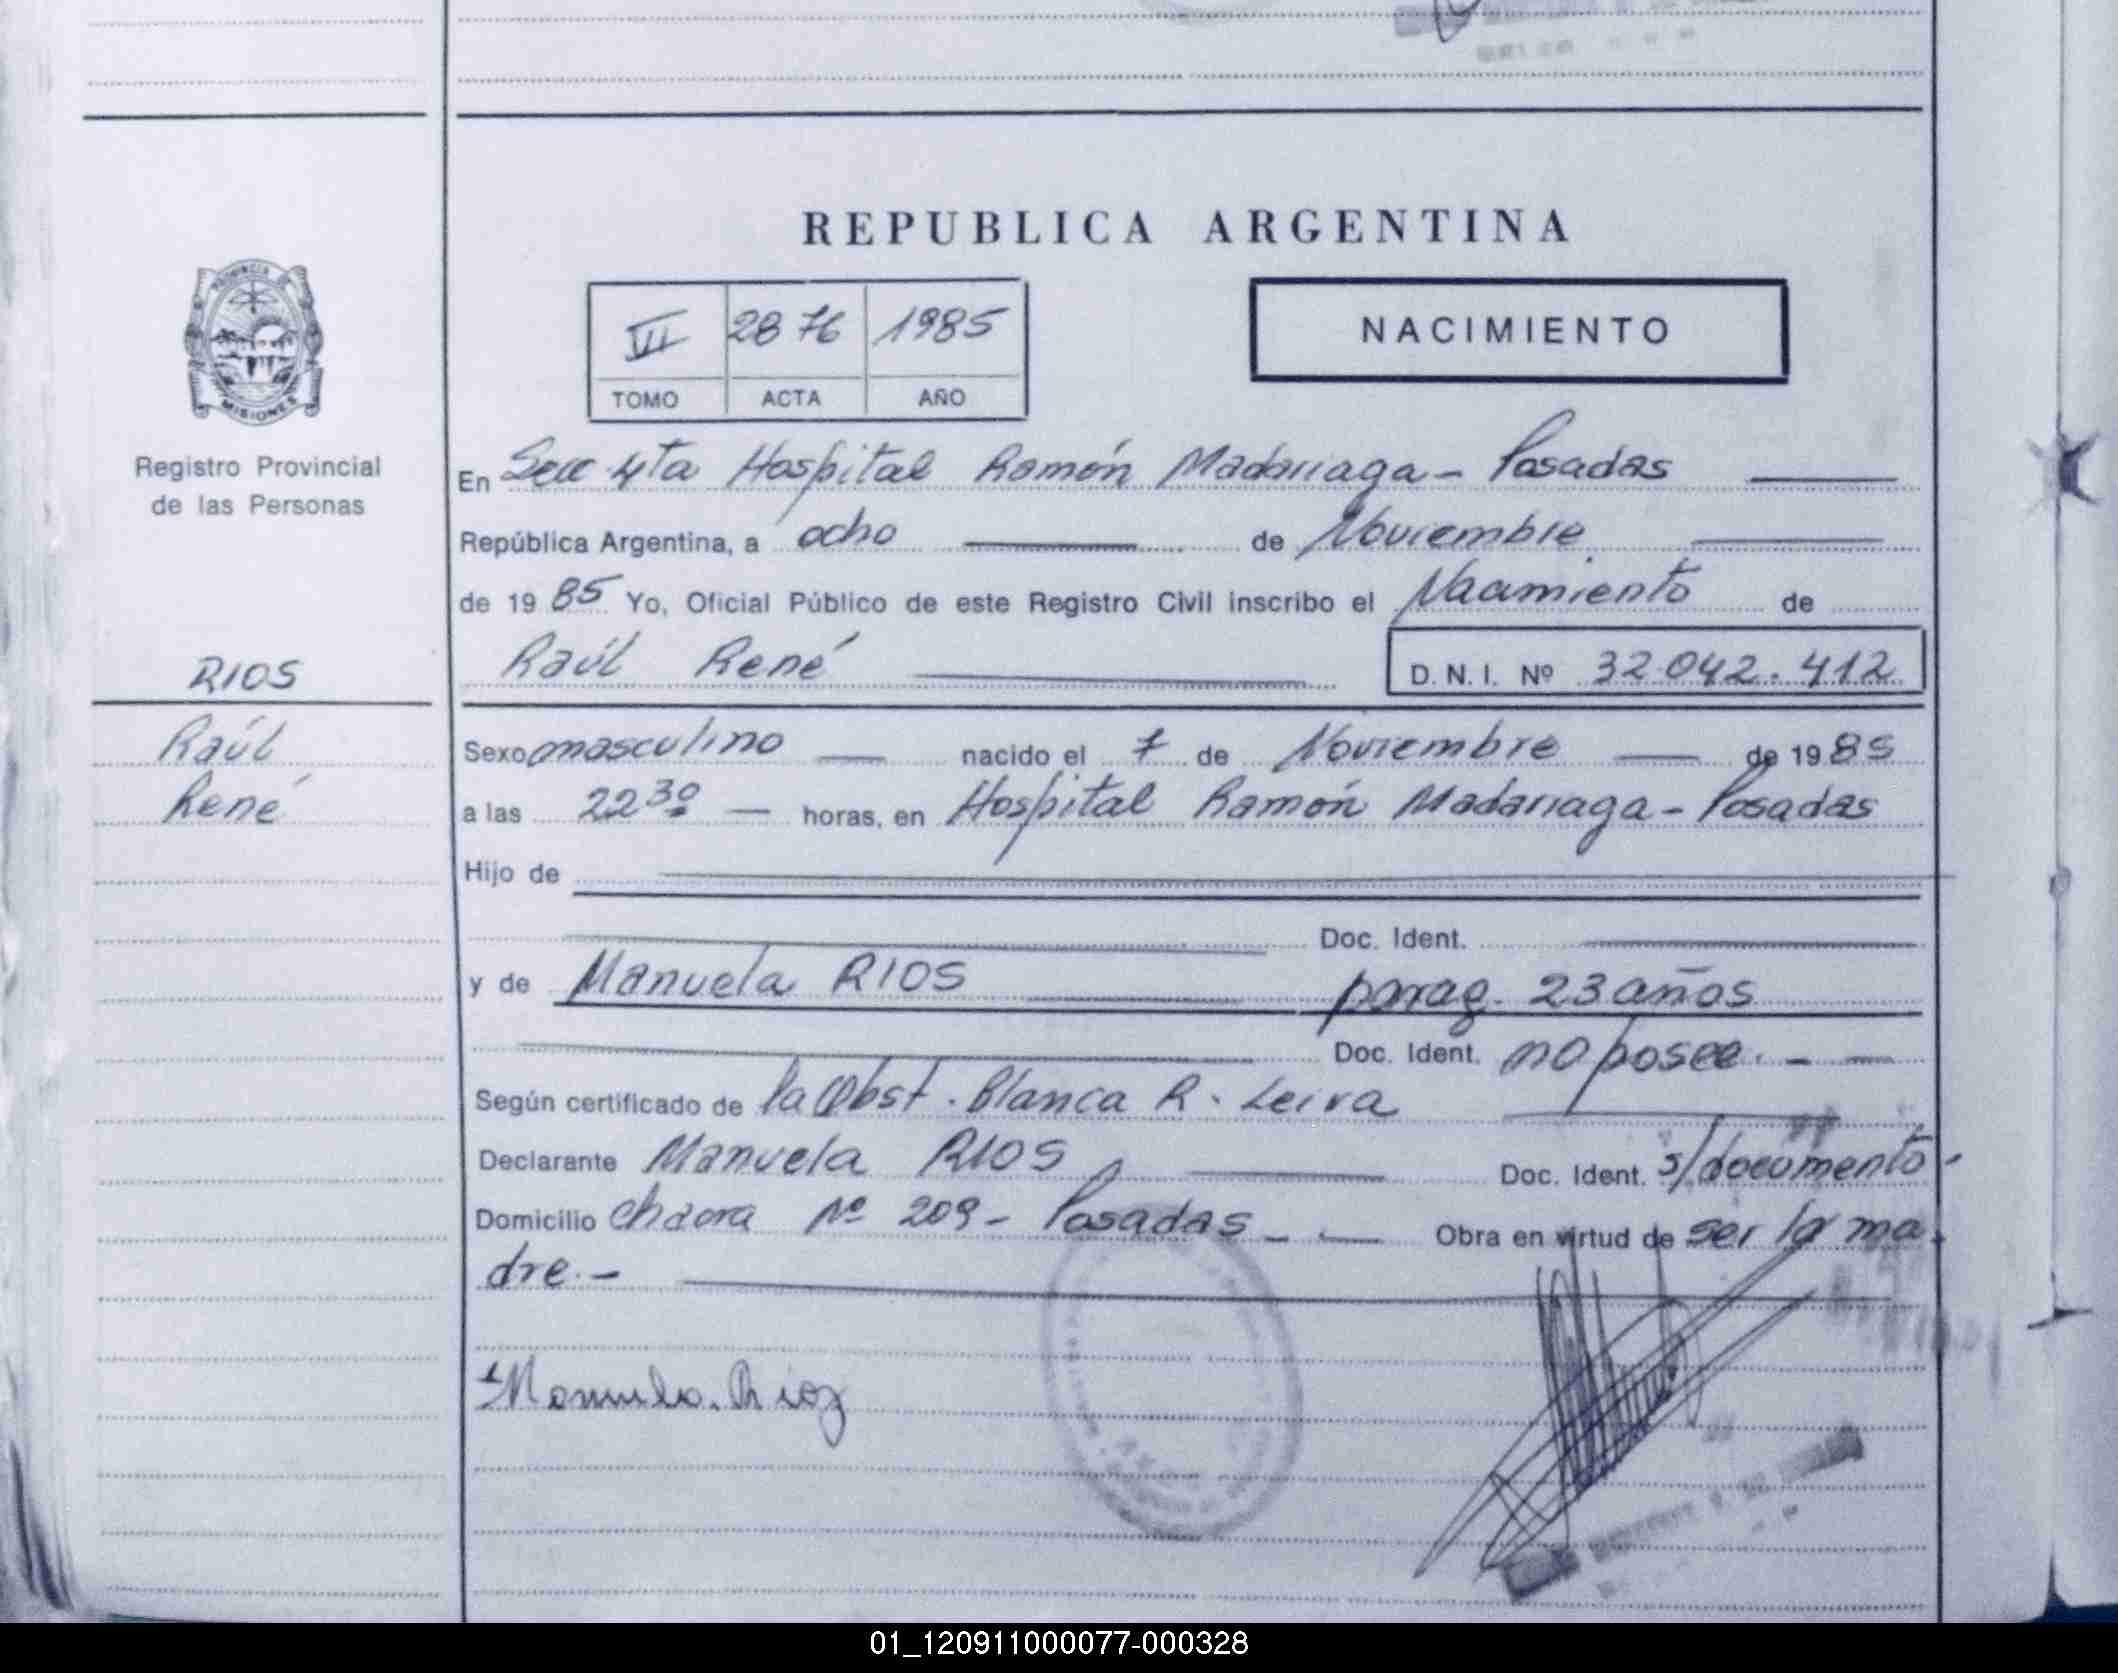 REPUBLICA ARGENTINA
VII 2876 1985
TOMO ACTA AÑO
NACIMIENTO
PROVINCIA DE
MISIONES
Registro Provincial
de las Personas
RIOS
Raúl
René
En Secc 4ta Hospital Ramón Madariaga - Posadas
República Argentina, a ocho de Noviembre
de 19 85 Yo, Oficial Público de este Registro Civil inscribo el Nacimiento de
Raúl René D. N. I. Nº 32.042.412
Sexo masculino nacido el 7 de Noviembre de 19 85
a las 22 30 horas, en Hospital Ramón Madariaga - Posadas
Hijo de
Doc. Ident.
y de Manuela RIOS parag. 23 años
Doc. Ident. no posee. -
Según certificado de la Obst. Blanca R. Leiva
Declarante Manuela RIOS Doc. Ident. s/documento.
Domicilio Chacra Nº 209 - Posadas - Obra en virtud de ser la ma-
dre. -
Manuela. Rioz
01_120911000077-000328